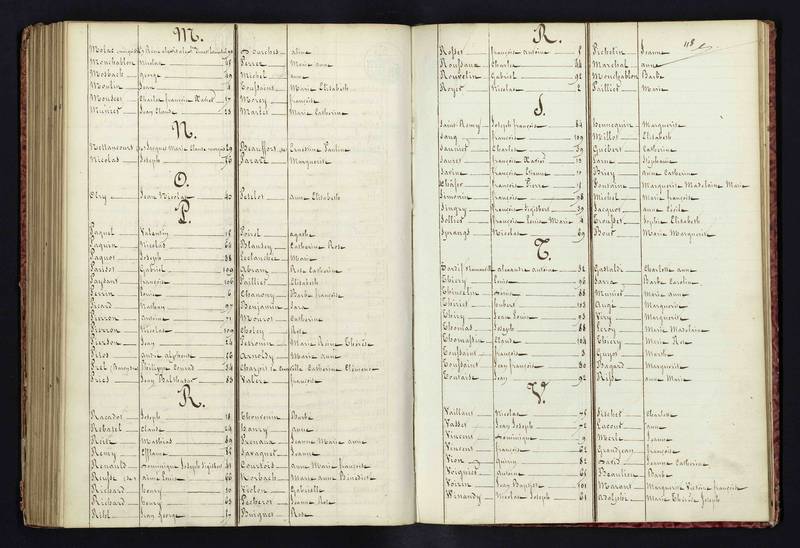 M.
Molac Durches aline
Monchablon Nicolas 78 Perret Marie anne
Mosbach George 49 Michel anne
Moulin Jean 4 Toussaint Marie Elisabeth
Charles françois 17 Morey françoise
Munier Jean Claude 23 Martel Marie Catherine
N.
Nettancourt Jacques Marie Claude 29 Beauffort Ernestine Pauline
Nicolas Joseph 76 Marguerite
O.
Olry Jean Nicolas 40 Petelot anne Elisabeth
P.
Paquet Valentin 18 Poirot agathe
Paquin Nicolas 64 Blaudez Catherine Rose
Paquot Joseph 38 Marie
Parisot Gabriel 109 Abram Rose Catherine
Paysant françois 106 Paillier Elisabeth
Perrin Louis 6 Chanony Barbe françoise
Picard Nathan 97 Benjamin Sara
Pierron Antoine 71 Moiros Catherine
Pierron Nicolas 100 Choley Rose
Pierson Jean 24 Perronin Marie Reine Thérèse
Pitos André alphonse 16 Arnoldy Marie anne
Philippe Conrad 54 Catherine Clémence
Pries Jean Balthasar 63 Valer françoise
R.
Racadot Joseph 18 Thouvenin Barbe
Rebatel Claude 24 Hanry anne
Reitz Mathias 89 Renaux Jeanne Marie anne
Remy Etienne 87 Savagnet Jeanne
Renauld Dominique Joseph 41 Courtois anne Marie françoise
aimé Louis 66 Norbach Marie anne Bénédict
Richard henry 30 Victor Gabrielle
Richard henry Pecheros Jeanne Rose
Jean George Buignet Rose
118
R.
Rosser françois antoine 8 Picketin Jeanne
Roussaux Charles 44 Marchal anne
Rouvelin Gabriel 92 Monchablon Barbe
Royer Nicolas 2 Paillier Marie
S.
Saint-Remy Joseph françois 84 Hennequin Marguerite
Sang françois 109 Millot Elisabeth
Saunier Charles 39 Guébert Catherine
Sauret françois Xavier 13 Sarne Stéphanie
Savine françois Etienne 10 Briey anne Catherine
Schäfer françois Pierre 11 Fontaine Marguerite Madelaine Marie
Simonin françois 98 Michel Marie françoise
Singry françois 39 Jacquot anne Cécile
Solliet françois Louis Marie 4 Crousset Sophie Elisabeth
Sprangs Nicolas 69 Bour Marie Marguerite
T.
Tardif alexandre antoine 52 Gastaldi Charlotte anne
Thiéry Louis 96 Sarra Barbe Caroline
Thincelin 88 Munier Marie anne
Thiriet hubert 103 Augé Marguerite
Thiry Jean Louis 93 Véry Marguerite
Thomas Joseph 88 Leroy Marie Madelaine
Thomassin Claude 104 Thiéry Marie Rose
Toussaint françois 8 Guyot Marthe
Toussaint Jean françois 80 Bagard Marguerite
Toutaise Jean 92 Risse anne Marie
V.
Vaillant Nicolas 75 Fischer Charlotte
Vasser Jean Joseph 72 Lacour anne
Vincent Dominique 9 Merle Jeanne
Vincent françois 62 Grandjean françoise
Vion Quirin 82 David Jeanne Catherine
Voignier Antoine 61 Beaulieu Barbe
Voirin Jean Baptiste 101 Marant Marguerite Victoire françoise
Winandy Nicolas Joseph 61 Adolphi Marie Thérèse Joseph